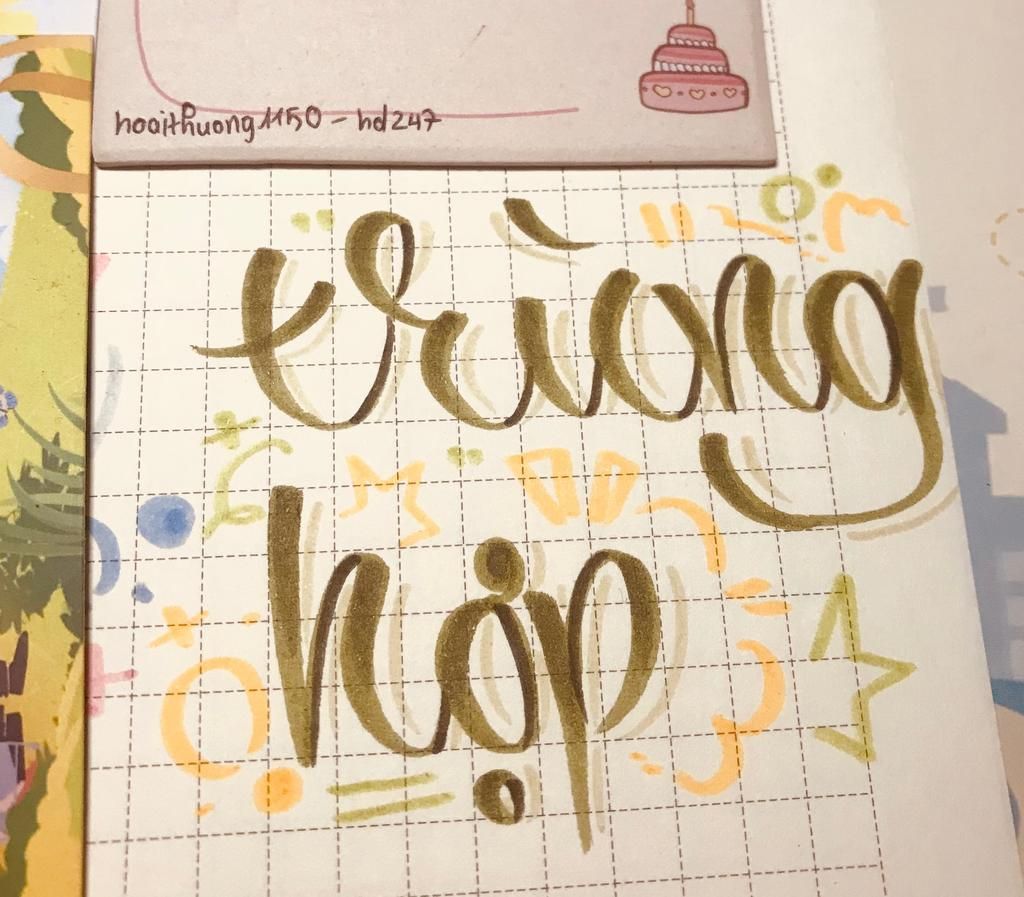 hoaithuong1150 - hd247
trùong
hợp